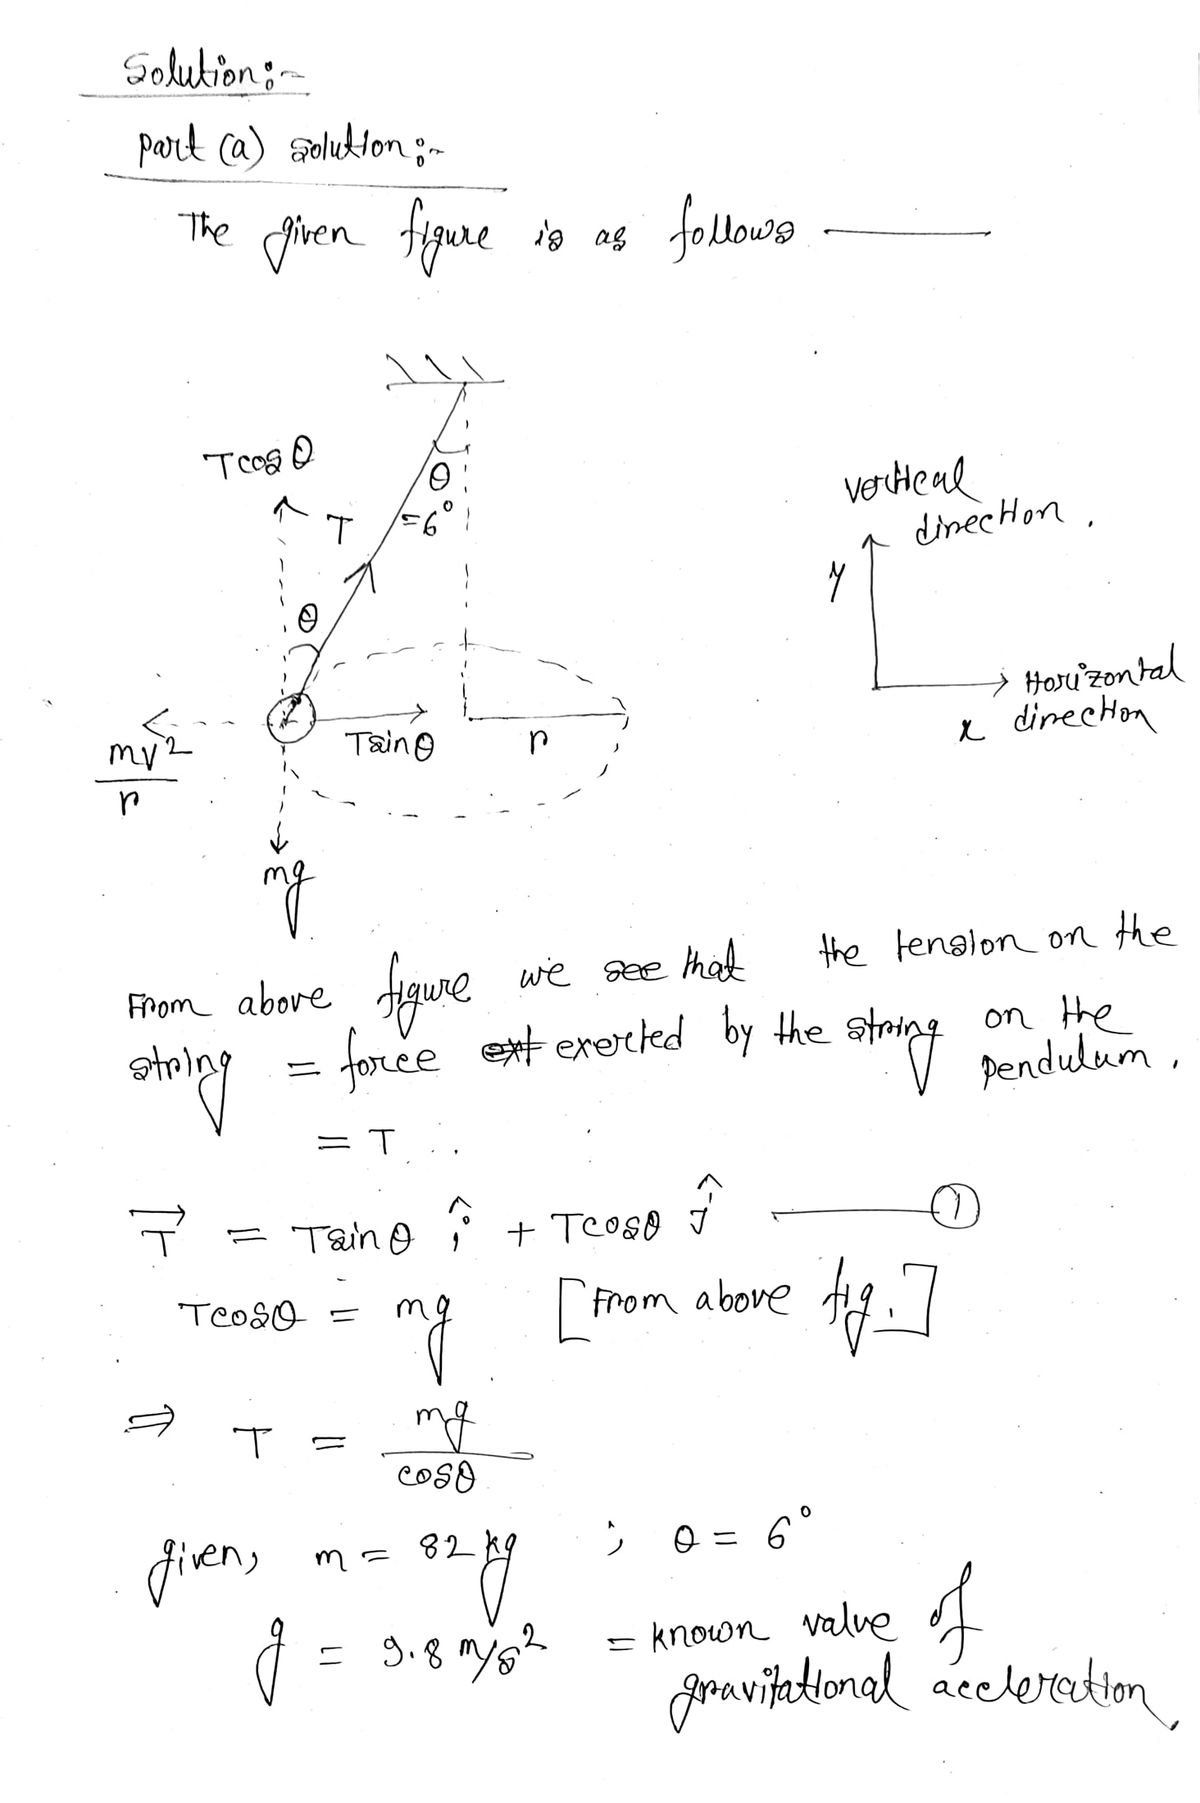 Solution:-
part (a) solution:-
The given figure is as follows
Tcosθ
T
θ
=6°
θ
mv²/r
Tsinθ
r
mg
vertical
direction.
y
Horizontal
x direction
From above figure we see that the tension on the
string = force ext exerted by the string on the
pendulum.
= T
T⃗ = Tsinθ î + Tcosθ ĵ ——— ①
Tcosθ = mg [From above fig.]
⇒ T = mg/cosθ
given, m = 82 kg ; θ = 6°
g = 9.8 m/s² = known value of
gravitational accleration,